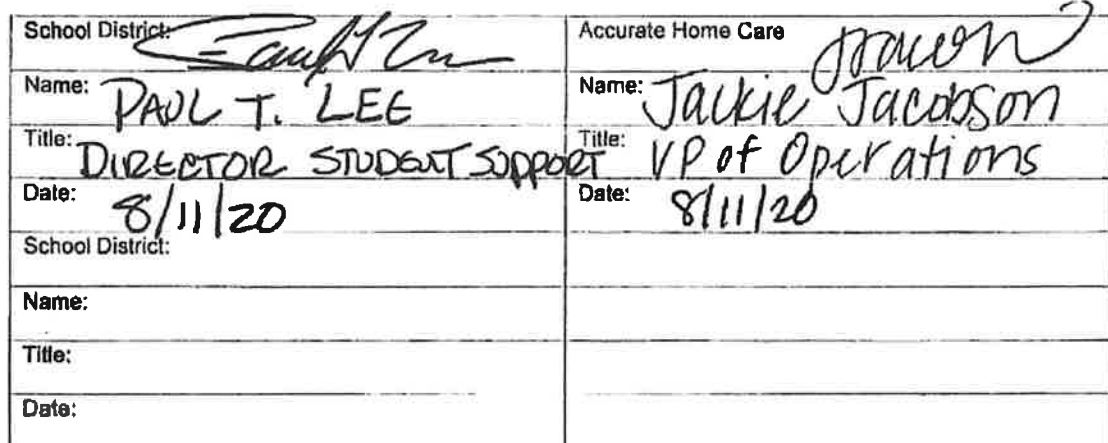 School District:
Accurate Home Care
Name: PAUL T. LEE
Name: Jackie Jacobson
Title: DIRECTOR STUDENT SUPPORT
Title: VP of Operations
Date: 8/11/20
Date: 8/11/20
School District:
Name:
Title:
Date: